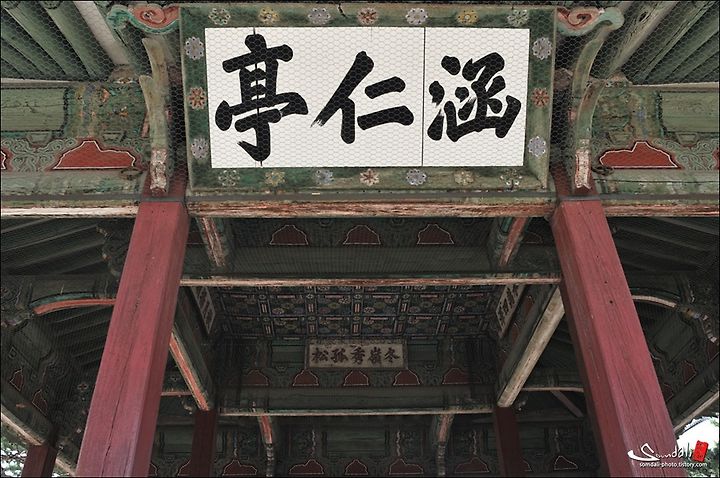 涵仁亭
冬嶺秀孤松
Somdali
somdali-photo.tistory.com